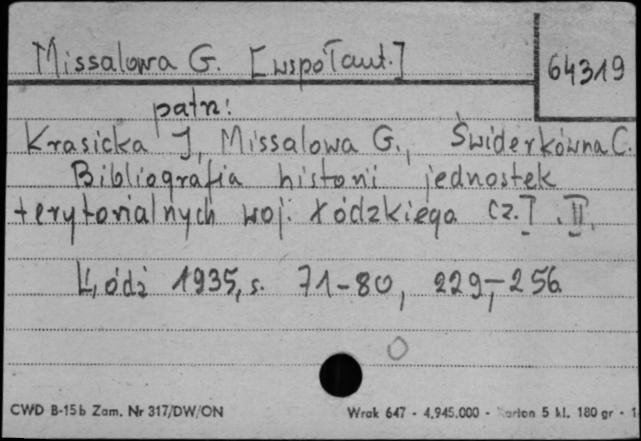 Missalowa G. [współaut.]
64319
patrz:
Krasicka J, Missalowa G., Świderkówna C.
Bibliografia historii jednostek
terytorialnych woj. Łódzkiego cz. I, II.
Łódź 1935, s. 71-80, 229-256
CWD B-15b Zam. Nr 317/DW/ON
Wrak 647 - 4.945.000 - Karton 5 kl. 180 gr - 1